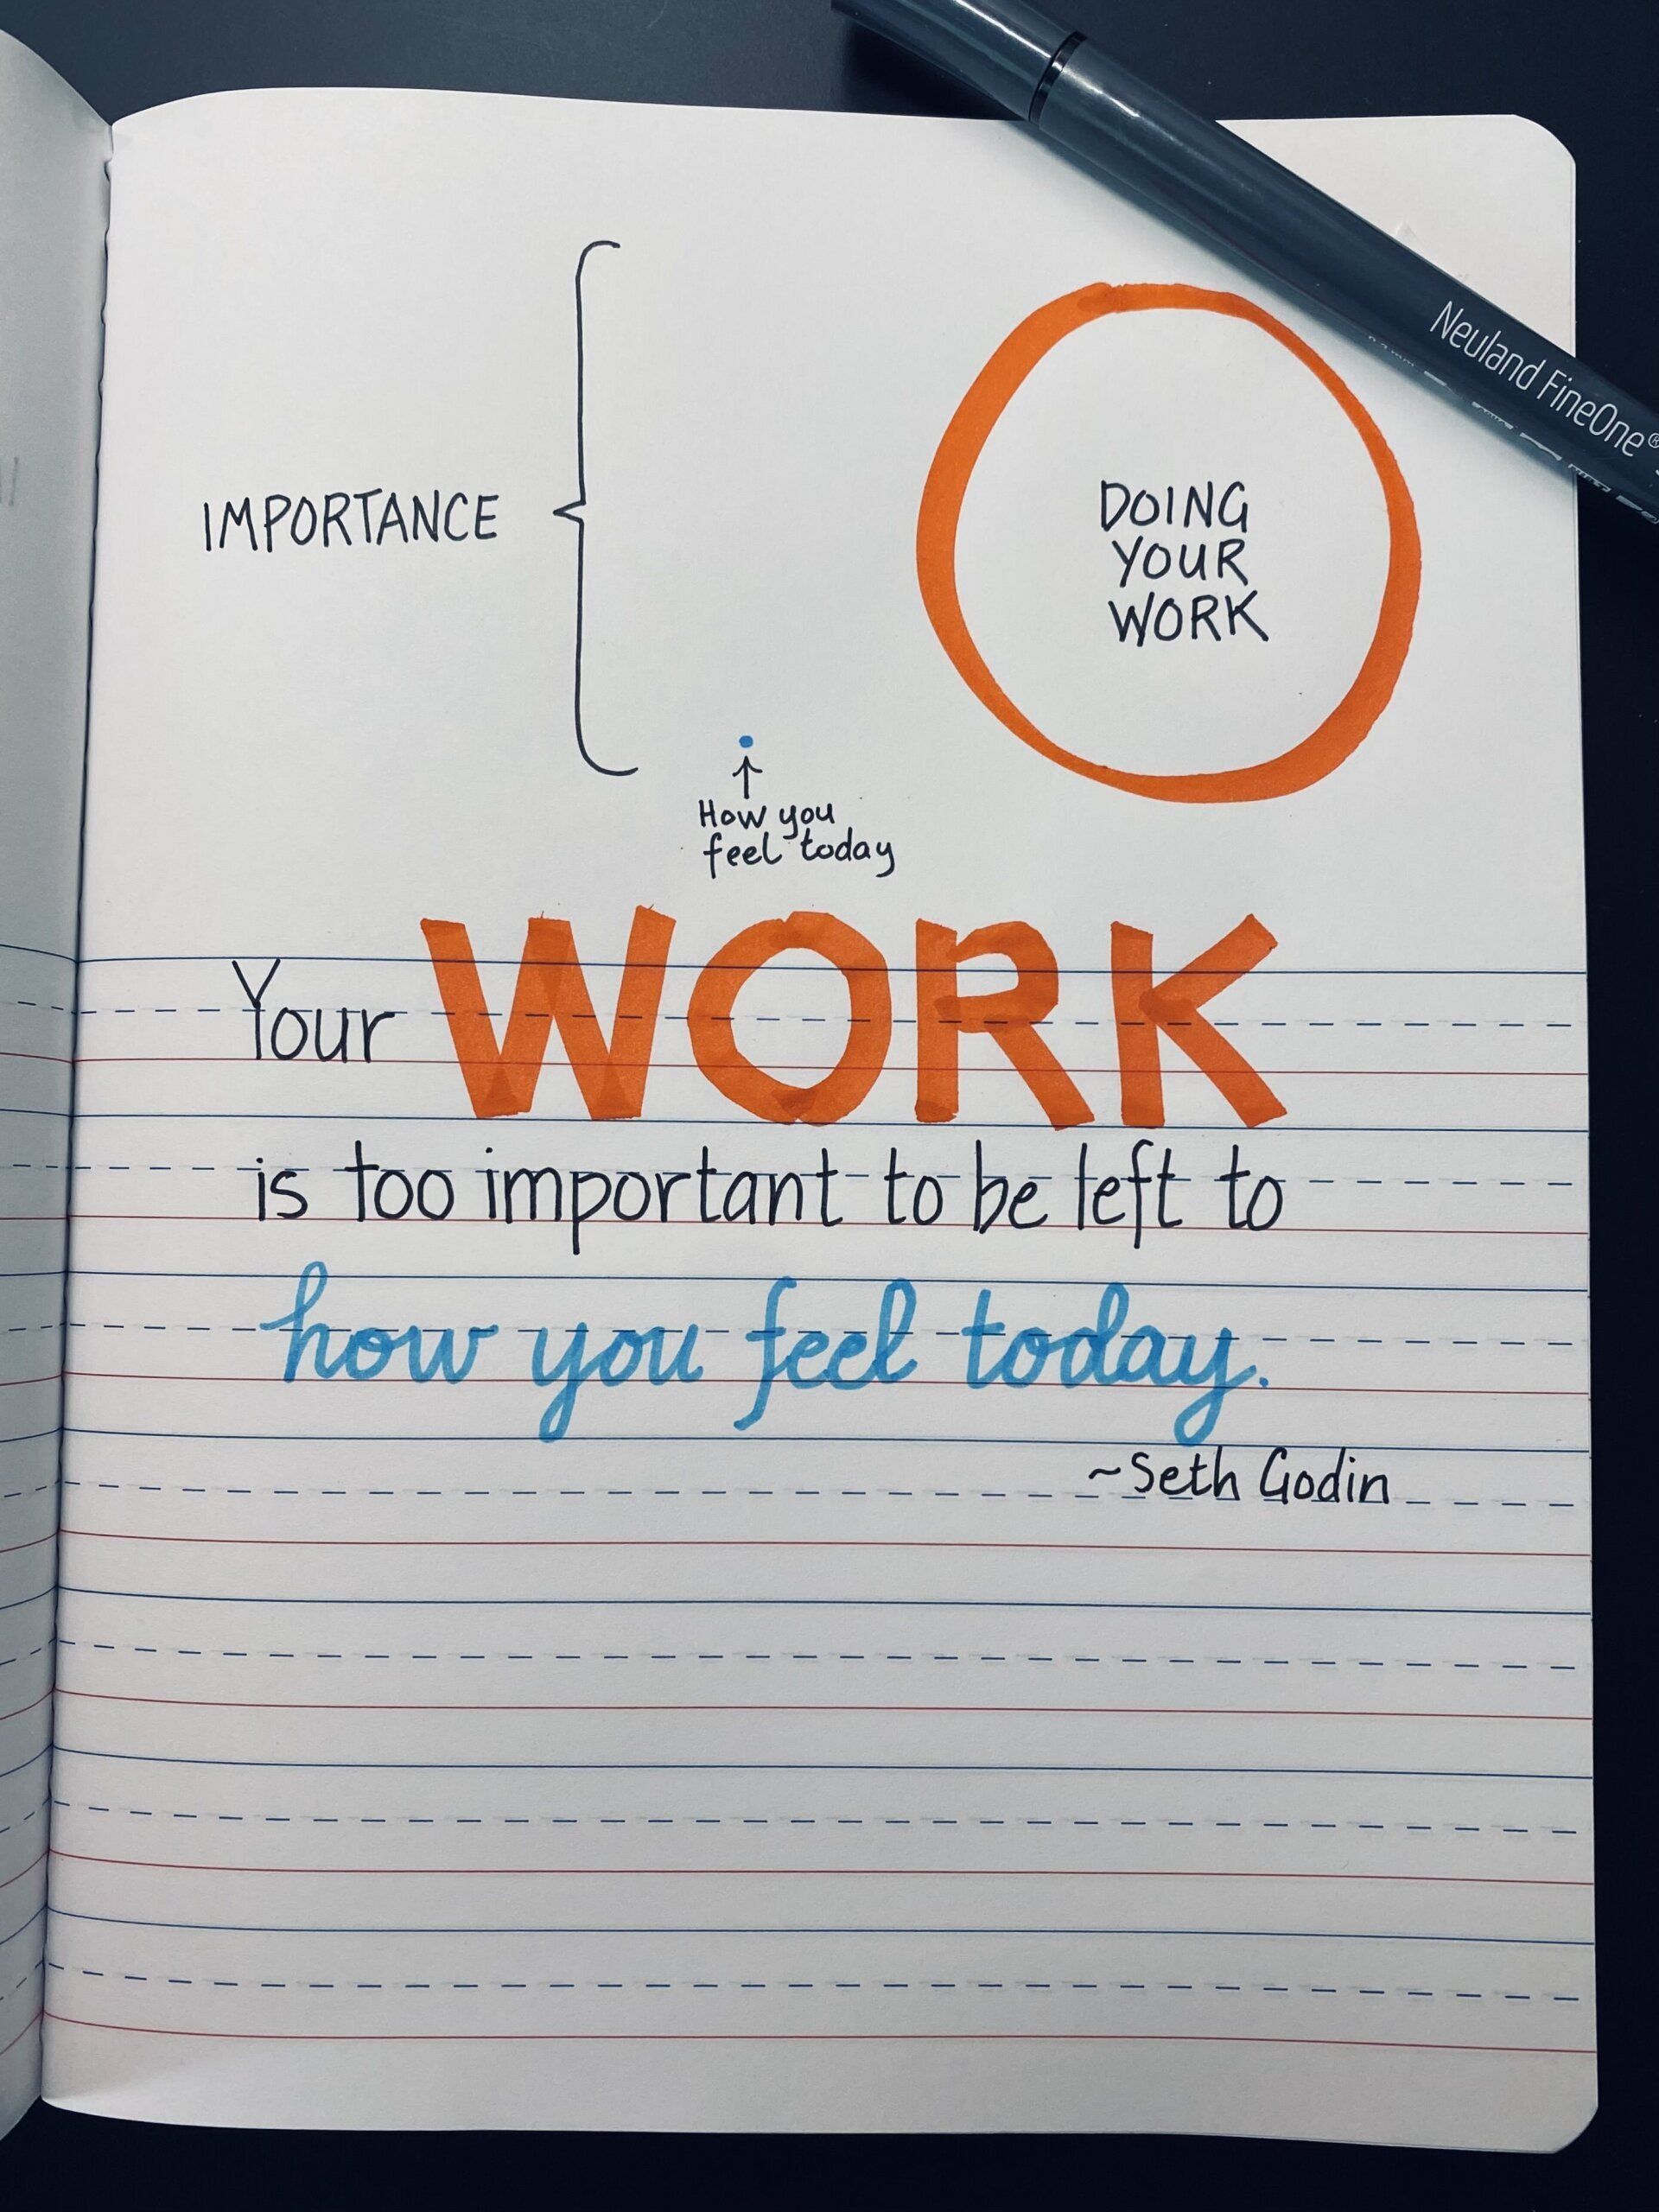 Neuland FineOne®
IMPORTANCE
DOING
YOUR
WORK
How you
feel today
Your WORK
is too important to be left to
how you feel today.
~Seth Godin